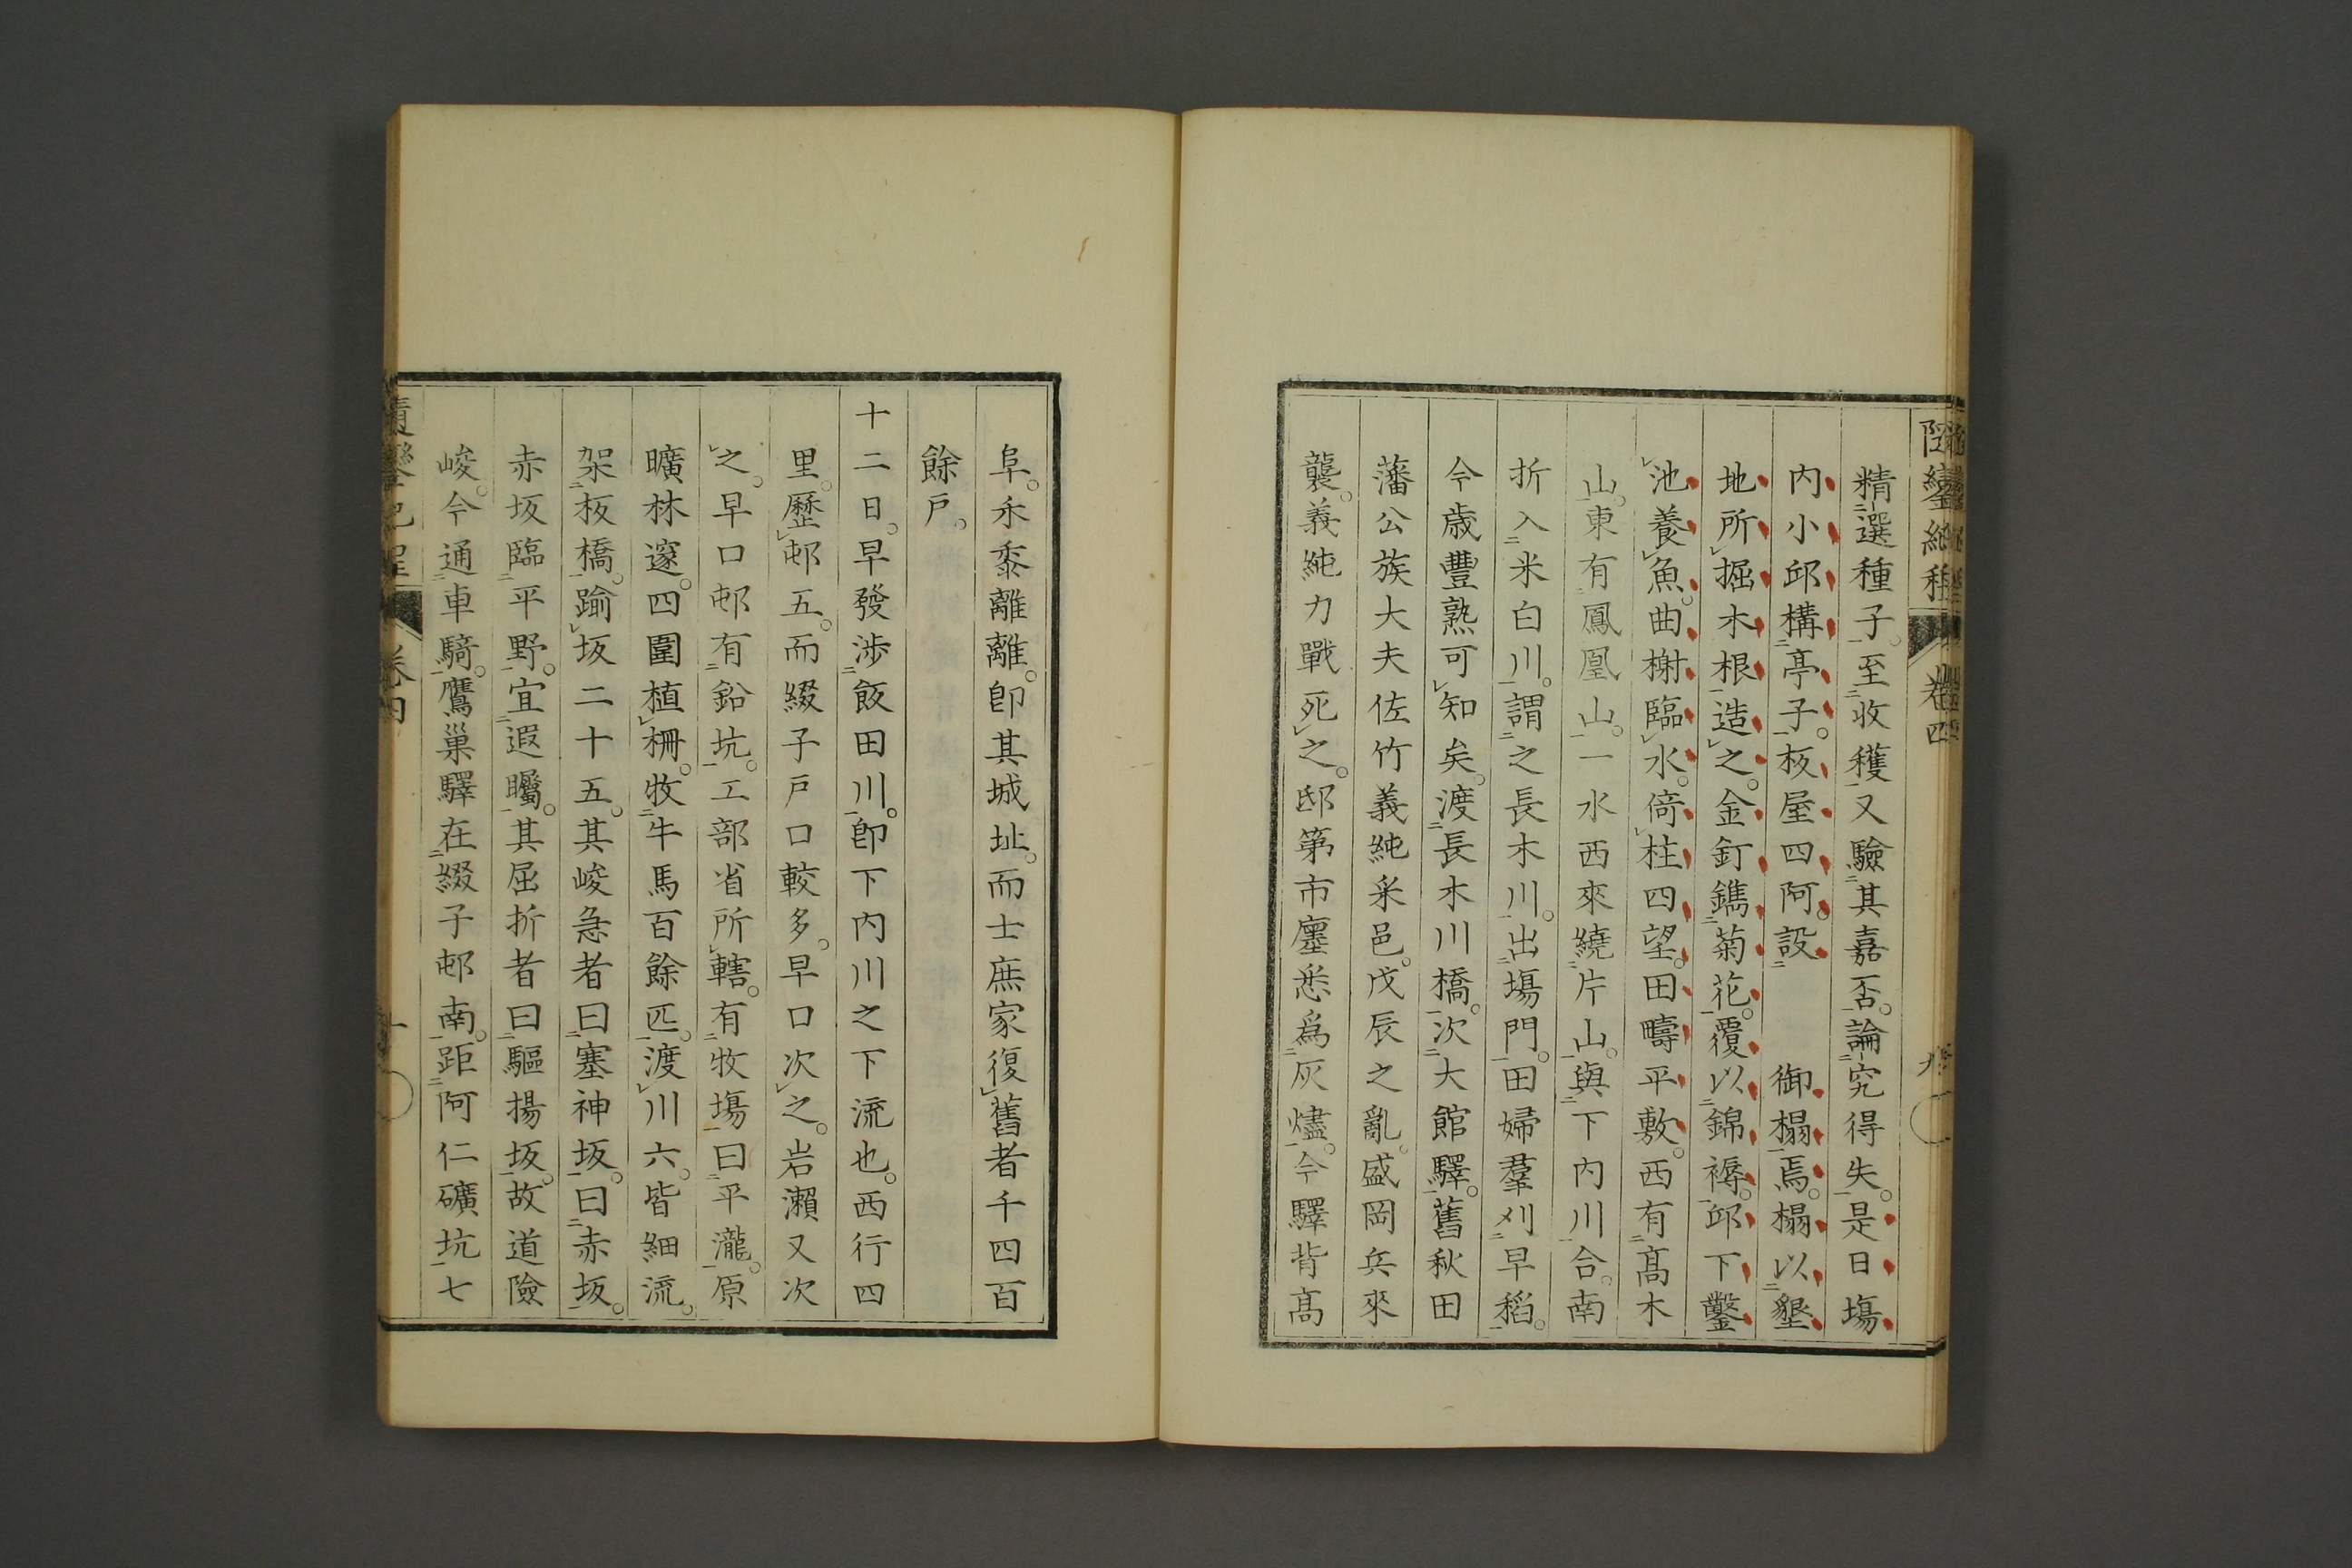 隨鑾紀程 卷四 九
精選種子。至收穫又驗其嘉否。論究得失。是日塲
內小邱構亭子。板屋四阿。設　御榻焉。榻以墾
地所掘木根造之。金釘鐫菊花。覆以錦褥。邱下鑿
池養魚。曲榭臨水。倚柱四望。田疇平敷。西有髙木
山。東有鳳凰山。一水西來繞片山。與下內川合。南
折入米白川。謂之長木川。出塲門。田婦羣刈早稻。
今歳豐熟可知矣。渡長木川橋。次大館驛。舊秋田
藩公族大夫佐竹義純采邑。戊辰之亂。盛岡兵來
襲。義純力戰死之。邸第市廛悉爲灰燼。今驛背髙
阜。禾黍離離。卽其城址。而士庶家復舊者千四百
餘戶。
十二日。早發渉飯田川。卽下內川之下流也。西行四
里。歷邨五。而綴子戶口較多。早口次之。岩瀨又次
之。早口邨有鉛坑。工部省所轄。有牧塲曰平瀧。原
曠林邃。四圍植柵。牧牛馬百餘匹。渡川六。皆細流。
架板橋。踰坂二十五。其峻急者曰塞神坂。曰赤坂。
赤坂臨平野。宜遐矚。其屈折者曰驅揚坂。故道險
峻。今通車騎。鷹巢驛在綴子邨南。距阿仁礦坑七
隨鑾紀程 卷四 十